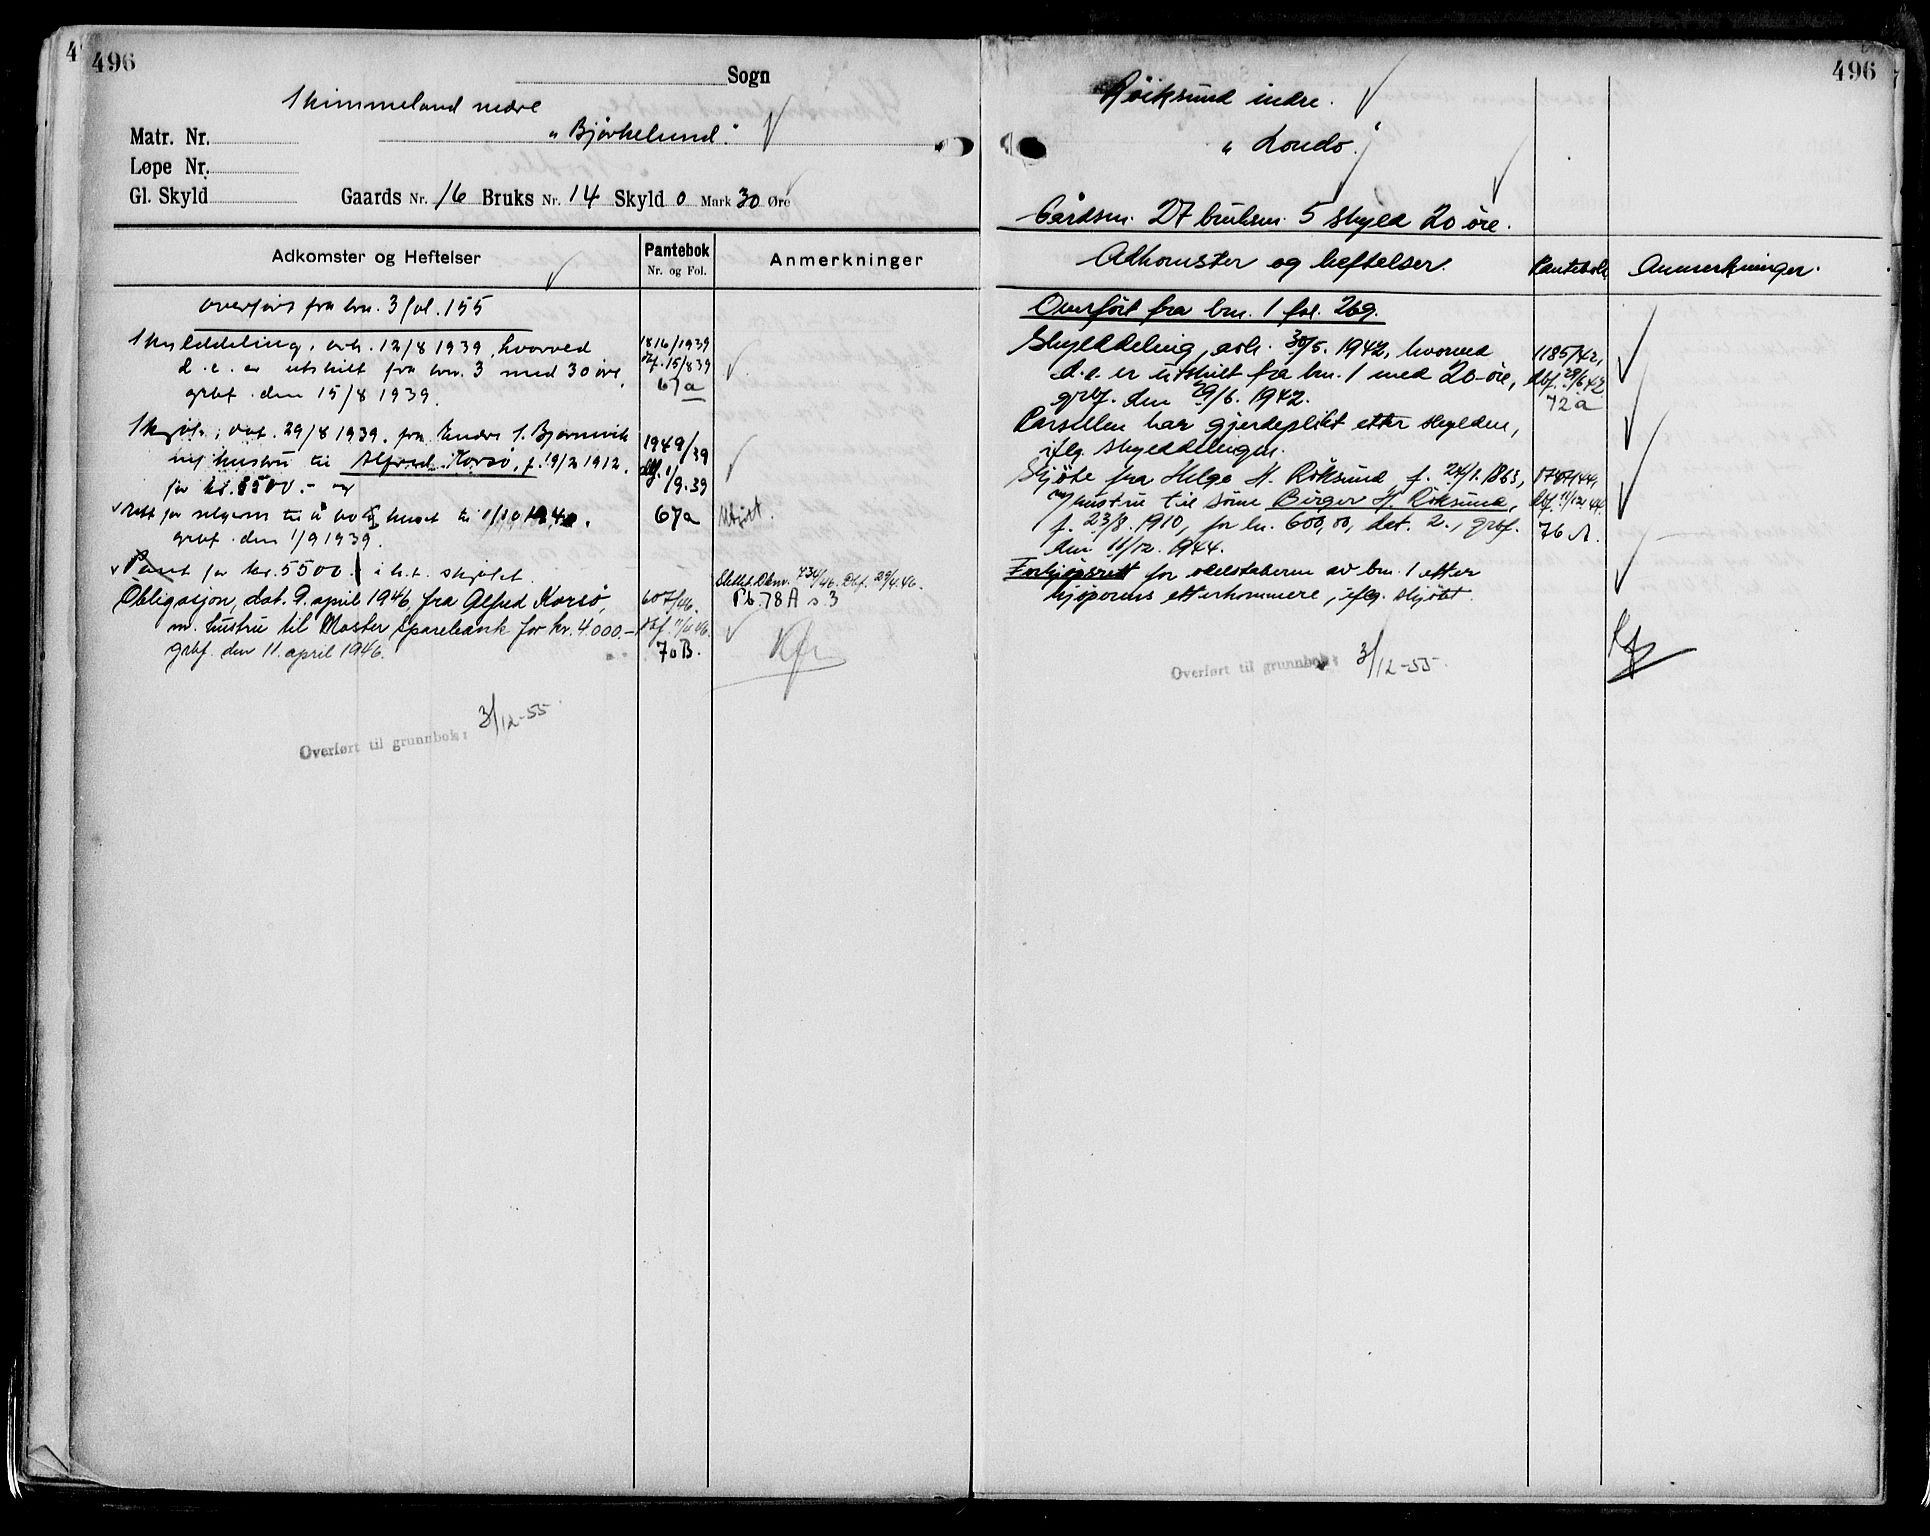 4
496
Sogn
Skimmeland nedre
Matr. Nr.
„Bjørkelund."
Løpe Nr.
Gl. Skyld
Gaards Nr. 16 Bruks Nr. 14 Skyld 0 Mark 30 Øre
Adkomster og Heftelser
Pantebok
Nr. og Fol.
Anmerkninger
overført fra bnr. 3 fol. 155
Skylddeling, avh. 12/8 1939, hvorved
d. e. er utskilt fra bnr. 3 med 30 øre,
grbf. den 15/8 1939.
1816/1939
dbf. 15/8 39
67a
Skjøte, dat. 29/8 1939, fra Endre S. Bjørnevik
m/ hustru til Alfred Korsø, f. 19/2 1912,
for kr. 8500.- og
1949/39
dbf. 1/
9.39
rett for selgeren til å bo i huset til 1/10 1940.
67a
Utført.
grbf. den 1/9 1939.
Pant for kr. 5500 i h. t. skjøtet.
Slettet. Dbnr. 734/46. Dbf. 29/4.46.
Pb. 78A s. 3
Obligasjon, dat. 9. april 1946, fra Alfred Korsø,
m. hustru til Moster Sparebank for kr. 4.000.-
grbf. den 11. april 1946.
607/46.
Dbf. 11/4 46.
70B.
Overført til grunnbok: 3/12-55.
496
Røiksund indre.
„Londo."
Gårdsnr. 27 bruksnr. 5 skyld 20 øre.
Adkomster og heftelser.
Pantebok
Anmerkninger.
Overført fra bnr. 1 fol. 269.
Skylddeling, avh. 30/5. 1942, hvorved
d. e. er utskilt fra bnr. 1 med 20 øre,
grbf. den 29/6. 1942.
1185/42,
dbf. 29/6 42
72a
Parsellen har gjerdeplikt etter skylden,
iflg. skylddelingen.
Skjøte fra Helge H. Røksund, f. 24/1. 1863,
m/hustru til sønn Birger H. Røksund,
f. 23/8. 1910, for kr. 600,00, dat. 2., grbf.
den 11/12. 1944.
dbf. 11/12 44.
76 A.
Forkjøpsrett for odelstakeren av bnr. 1 etter
kjøperens etterkommere, iflg. skjøtet.
Overført til grunnbok: 3/12-55.